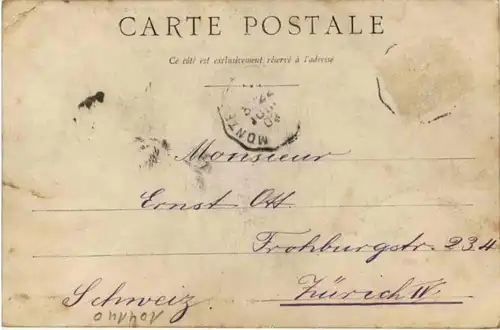 CARTE POSTALE
Ce côté est exclusivement réservé à l'adresse
Monsieur
Ernst Ott
Frohburgstr. 234
Zürich IV.
Schweiz
104140